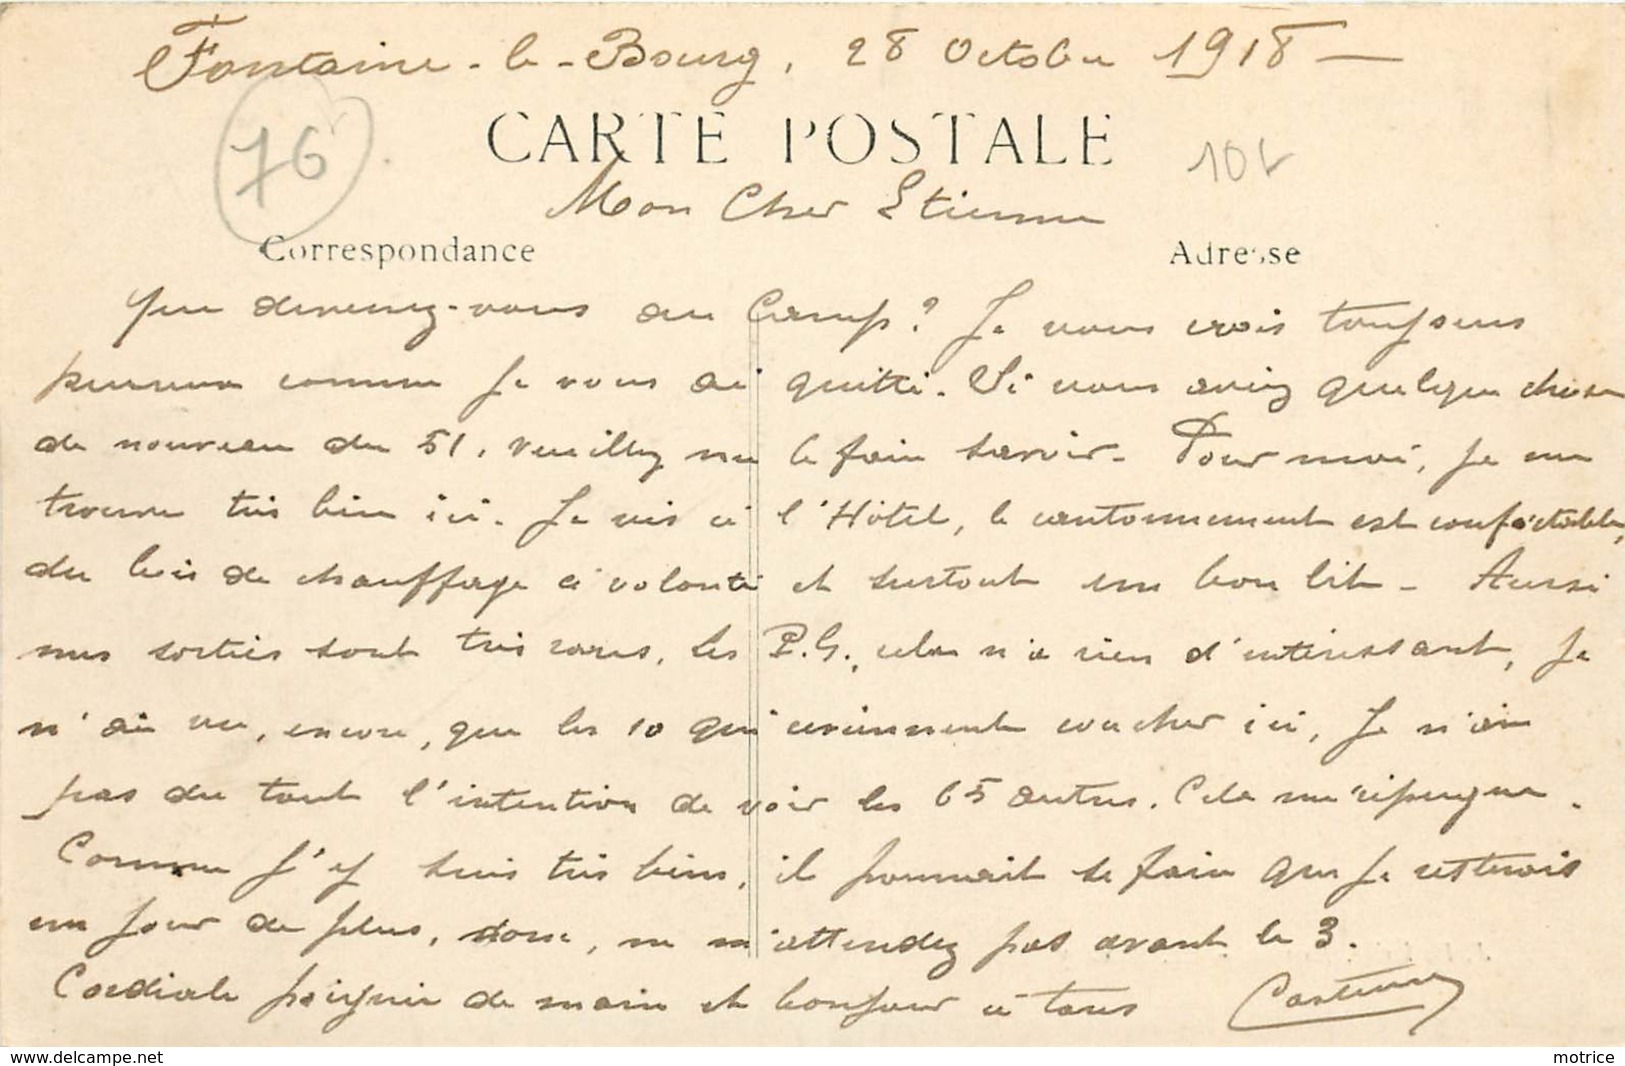 Fontaine-le-Bourg, 28 Octobre 1918
76
CARTE POSTALE
10
Mon Cher Etienne
Correspondance
Adresse
Que devenez-vous au Camp? Je vous crois toujours
comme je vous ai quitté. Si vous aviez quelque chose
de nouveau du 51, veuillez me le faire savoir. Pour moi, je me
trouve très bien ici. Je vis à l'Hôtel, le cantonnement est confortable,
du bois de chauffage à volonté et surtout un bon lit. Aussi
mes sorties sont très rares. Les P.G., cela n'a rien d'intéressant, je
n'ai vu, encore, que les 10 qui viennent coucher ici, je n'ai
pas du tout l'intention de voir les 65 autres. Cela me répugne.
Comme j'y suis très bien, il pourrait se faire que je resterais
un jour de plus, donc, ne m'attendez pas avant le 3.
Cordiale poignée de main et bonjour à tous
www.delcampe.net
motrice